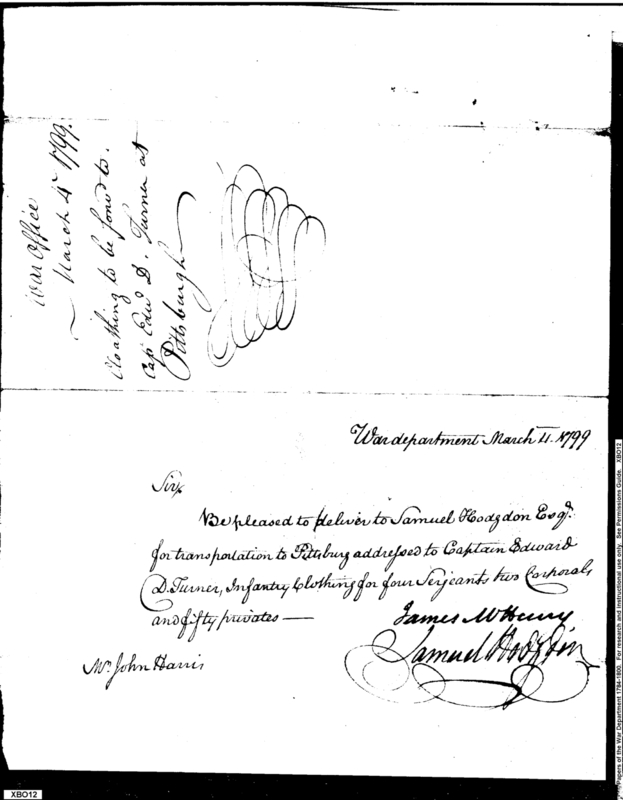 War Office
March 4th 1799.
Cloathing to be forw'd to.
Cap. Edwd D. Turner at
Pittsburgh
War department March 4. 1799
Sir,
Be pleased to deliver to Samuel Hodgdon Esqr.
for transportation to Pittsburg addressed to Captain Edward
D. Turner, Infantry Clothing for four Serjeants two Corporals
and fifty privates —
James McHenry
Samuel Hodgdon
Mr. John Harris
XBO12
Papers of the War Department 1784-1800. For research and instructional use only. See Permissions Guide. XBO12